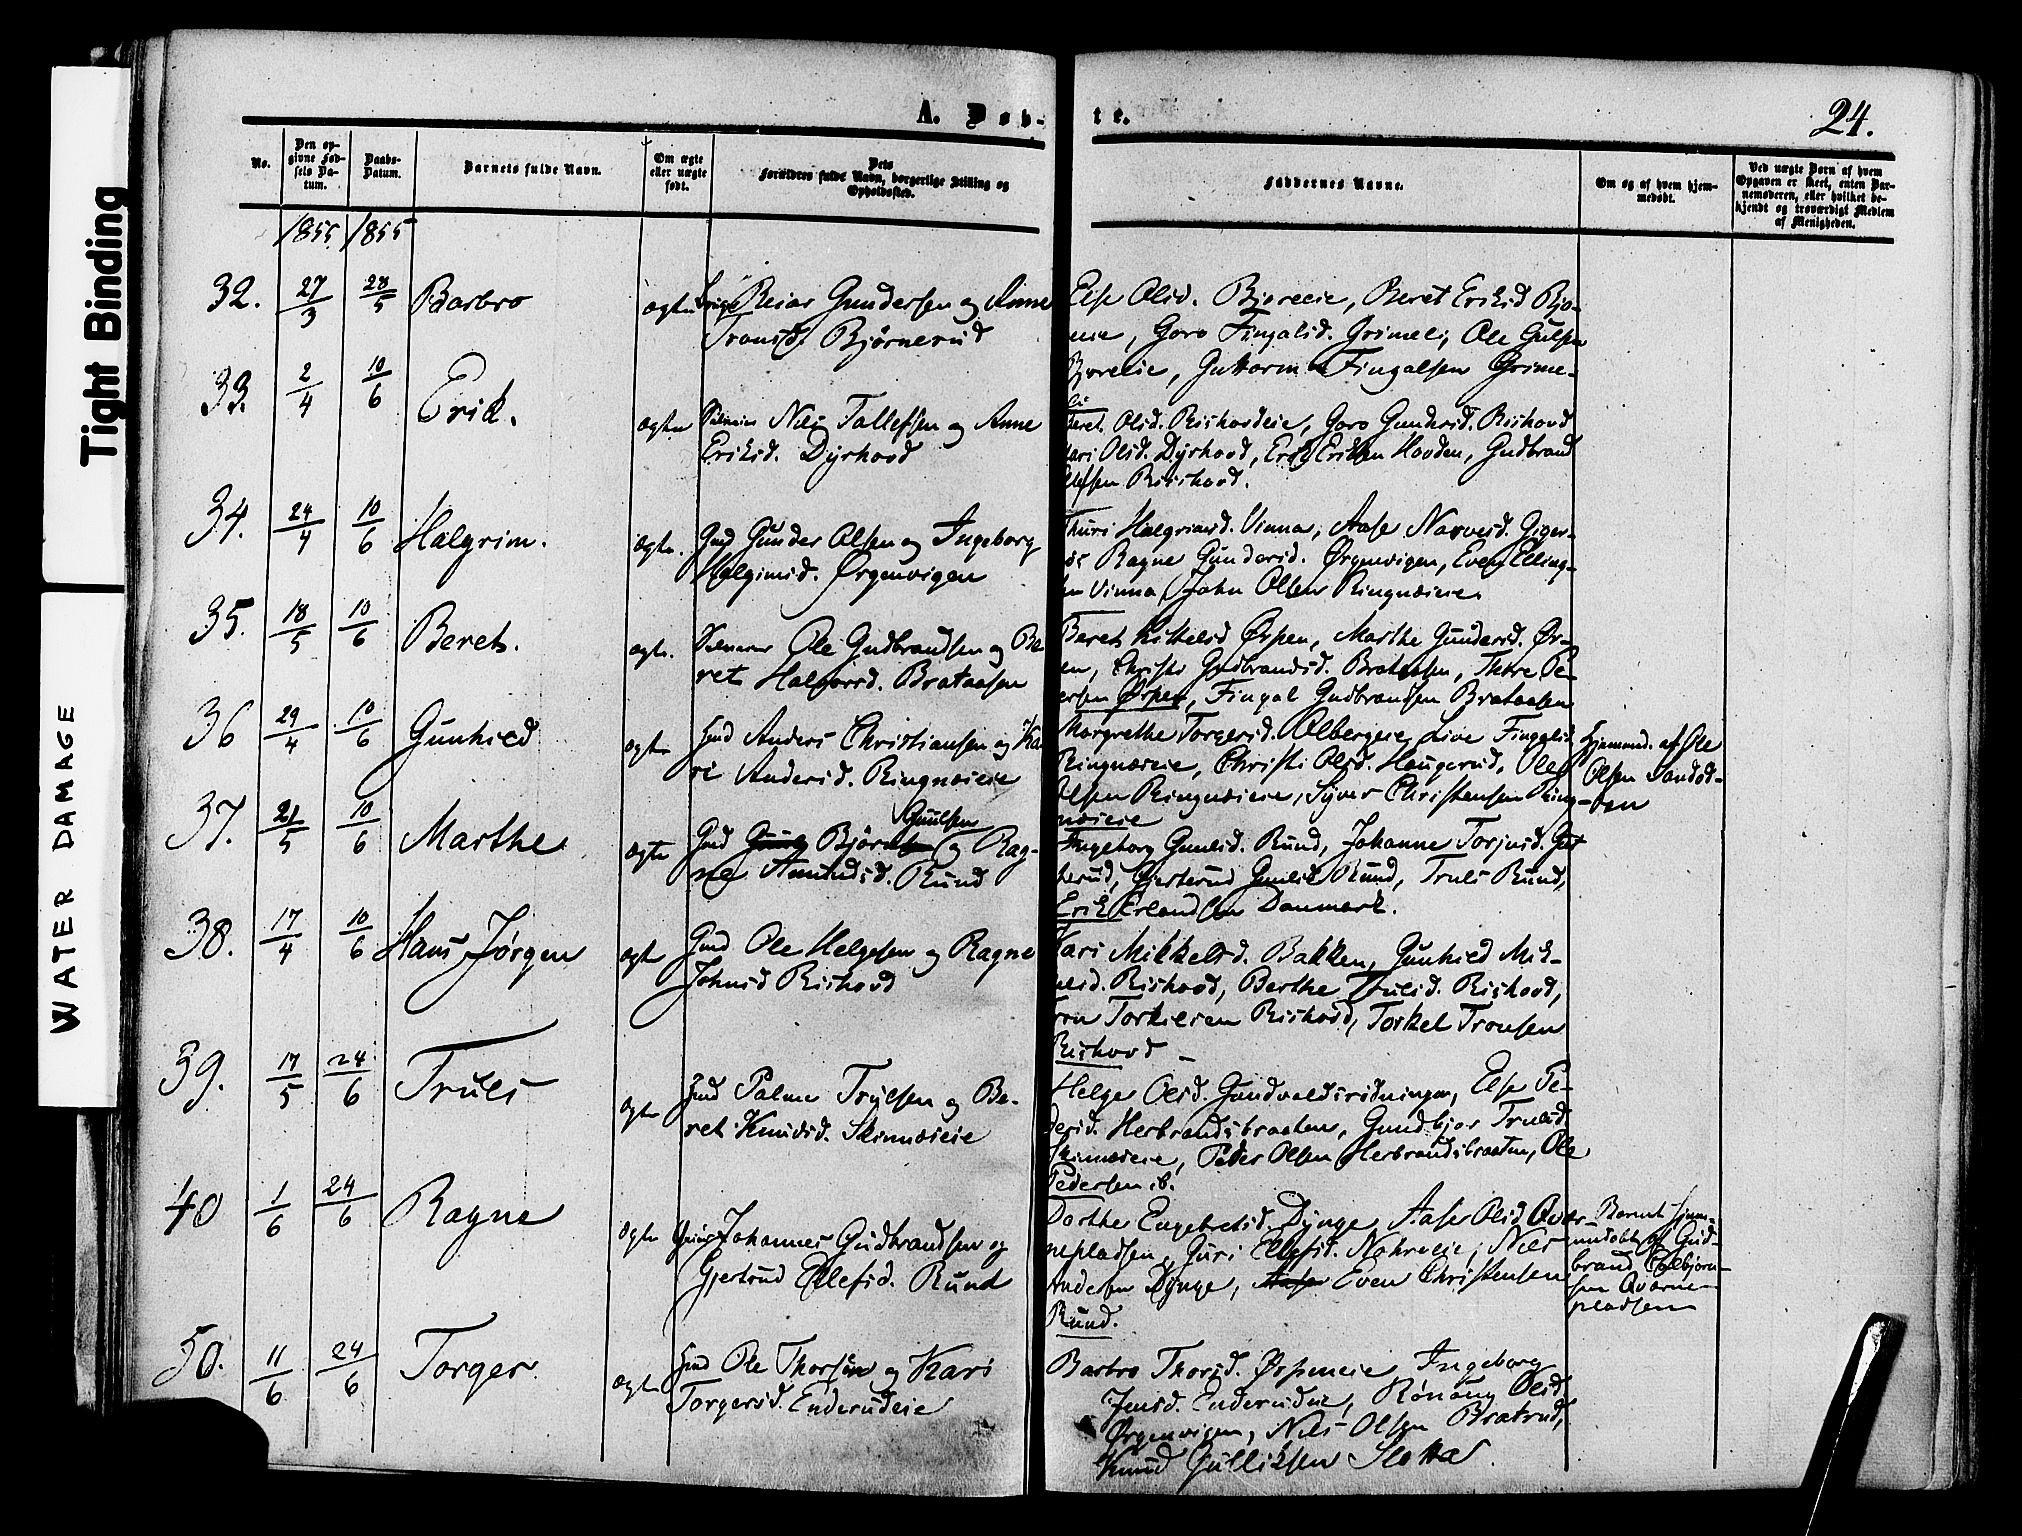 Tight Binding
WATER DAMAGE
A. Døb-te.
24.
No.
Den op-
givne Fød-
sels Da-
tum.
Daabs-
Datum.
Barnets fulde Navn.
Om ægte
eller uægte
født.
Dets
Forældres fulde Navn, borgerlige Stilling og
Opholdssted.
Faddernes Navne.
Om og af hvem hjem-
medøbt.
Ved uægte Børn af hvem
Opgaven er skeet, enten Bar-
nemoderen, eller hvilket be-
kjendt og troværdigt Medlem
af Menigheden.
1855 1855
32. 27/3 28/5 Barbro ægte Reiar Gundersen og Anne
Tronsd. Bjørnerud
Else Olsd. Bjoreeie, Beret Eriksd Bjo-
reeie, Goro Fingalsd. Grimeli, Ole Gulsen
Bjoreeie, Guttorm Fingalsen Grime-
li
33. 2/4 10/6 Erik. ægte Nils Tollefsen og Anne
Eriksd. Dyrhovd
Beret Olsd. Rishovdeie, Goro Gundersd. Rishovd
Kari Olsd. Dyrhovd, Erik Eriksen Hovden, Gudbrand
Olesen Rishovd.
34. 24/4 10/6 Halgrim. ægte. Gmd Gunder Olsen og Ingeborg
Halgrimsd. Ørgenvigen
Thuri Halgrimsd. Vinna, Aase Narvesd. Giger-
Ragne Gundersd. Ørgenvigen, Even Elling-
sen Vinna, John Olsen Ringnæseie
35. 18/5 10/6 Beret. ægte. Ole Gudbrandsen og Be-
ret Halvorsd. Brataasen
Beret Kittelsd Ørpen, Marthe Gundersd. Ør-
pen, Christi Gudbrandsd. Brataasen, Thore Pe-
dersen Ørpen, Fingal Gudbrandsen Brataasen
36 29/4 10/6 Gunhild ægte Hmd Anders Christiansen og Ka-
ri Andersd. Ringnæseie
Margrethe Torgersd. Olbergeie, Live Fingalsd.
Ringnæseie, Christi Olsd. Haugerud, Ole
Olsen Ringnæseie, Syver Christensen Ring-
næseie
Hjemmed. af Ole
Olsen Sandsd-
37. 21/5 10/6 Marthe ægte Gmd Bjørn Guulsen og Rag-
ne Amundsd. Rund
Ingeborg Gunilsd. Rund, Johanne Torjusd. Gut
terud, Gjertrud Rund, Truls Rund,
Erik Erlandsen Danmark.
38. 17/4 10/6 Hans Jørgen ægte Gmd Ole Helgesen og Ragne
Johnsd Rishovd
Kari Mikkelsd. Bakken, Gunhild Mik-
kelsd. Rishovd, Berthe Trulsd. Rishovd,
Tron Torkilsen Rishovd, Torkel Tronsen
Rishovd
39. 17/5 24/6 Truls ægte Hmd Palme Trulsen og Be-
ret Knudsd. Skinnæseie
Helge Olsd. Gundvaldsrudningen, Else Pe-
dersd. Herbrandsbraaten, Gundbjør Trulsd.
Skinnæseie, Peder Olsen Herbrandsbraaten, Ole
Pedersen ib.
40 1/6 24/6 Ragne ægte Johannes Gudbrandsen og
Gjertrud Ellefsd. Rund
Dorthe Engebretsd. Dynge, Aase Olsd. Qvær-
nepladsen, Guri Ellefsd. Nahreeie, Nils
Andersen Dynge, Even Christensen
Rund.
Barnet hjem-
medøbt af Gud-
brand Colbjørn-
sen Qværne-
pladsen
50. 11/6 24/6 Torger. ægte Hmd Ole Thorsen og Kari
Torgersd. Enderudeie
Barbro Thorsd. Ørpeneie, Ingeborg
Jensd. Enderudeie, Rønaug Olsd
Ørgenvigen, Nils Olsen Bratrud,
Knud Gulliksen Sletta.